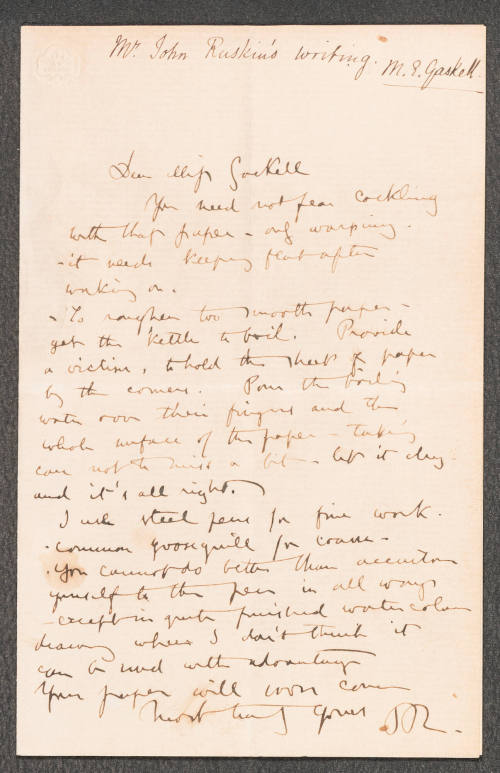 Mr. John Ruskin's writing. M. E. Gaskell.
Dear Miss Gaskell
You need not fear cockling
with that paper - only warping.
- it needs keeping flat after
working on.
- To roughen too smooth paper -
get the kettle to boil. Provide
a victim, to hold the sheet of paper
by the corners. Pour the boiling
water over their fingers and the
whole surface of the paper - taking
care not to miss a bit - let it dry
and it's all right.
I use steel pens for fine work.
- common goosequill for coarse -
You cannot do better than accustom
yourself to the pen in all ways
- except in quite finished water colour
drawing where I don't think it
can be used with advantage
Your paper will soon come
Most truly Yours JR.